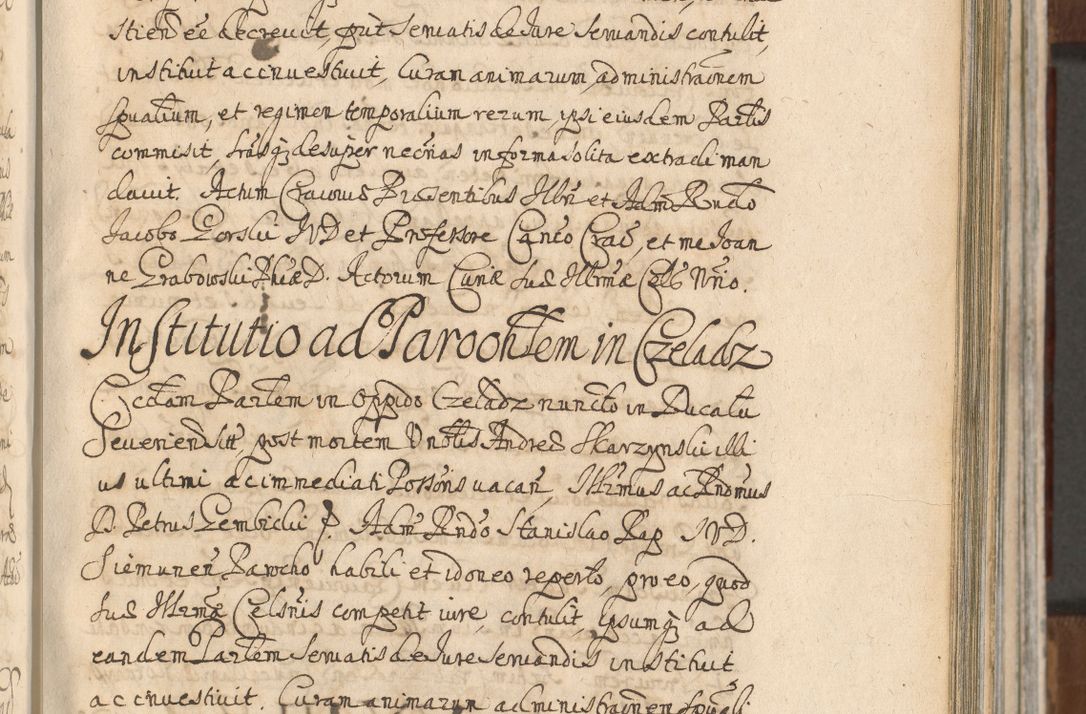 stien̄ eẽ decrevit, put̄ servatis de Jure servandis contulit,
instituit ac investivit, Curam animarum, administra͠onem
spualium, et regimen temporalium rerum ipsi eiusdem Par͠lis
commisit, lr̄asq; desuper necr̄ias in forma solita extradi man
davit. Actum Cracoviæ Præsentibus Illr̄i et Adm̄ R͠ndo
Jacobo Gorski JVD et Professore Can͠co Crac̄, et me Joan
ne Grabowski Ph̄iæ D. Actorum Curiæ Suæ Illr̄mæ Cels̄ N͠rio.
Institutio ad Paroch͠lem in Czeladz
Ecc͠lam Par͠lem in oppido Czeladz nuncto in Ducatu
Severien̄ sit̄, post mortem V nob͠lis Andreæ Skarzynski illi
us ultimi ac immediati Possōris vacan̄, Illr̄mus ac R͠ndmus
D. Petrus Gembicki P. Adm̄ R͠ndo Stanislao Rap JVD.
Siemunen̄ Parocho habili et idoneo reperto, pro eo, quod
Suæ Illr̄mæ Cels͠nis competit iure, contulit, Ipsumq; ad
eandem Par͠lem servatis de Jure servandis instituit
ac investivit. Curam animarum administra͠onem spu͠ali